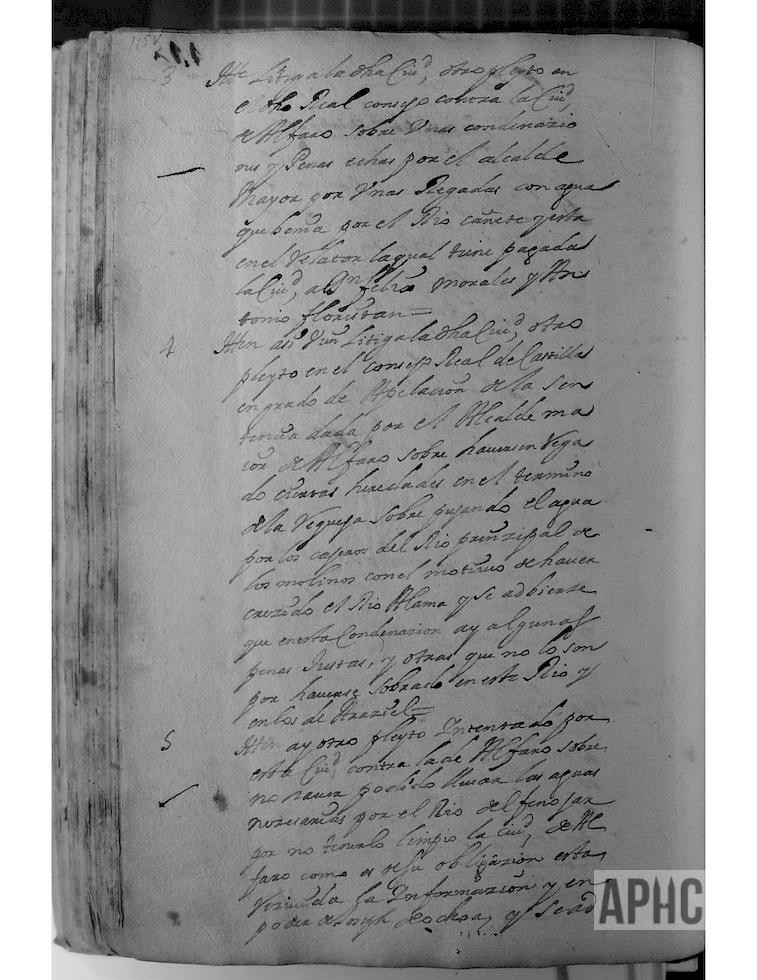 115v
3 Itte Litiga la dha Ciud, otro pleyto en
el dho Real consejo contra la Ciud,
de Alfaro sobre Unas condenazio
nes y Penas echas por el alcalde
mayor por Unas Regadas con agua
que benia por el Rio cañete y esta
en el Relator la qual tiene pagadas
la Ciud, a Morales y An
tonio florestan=
4 Itten assi Litiga la dha Ciud, otro
pleyto en el Consejo Real de Castilla
en grado de Apelacion de la sen
tencia dada por el Alcalde ma
ior de Alfaro sobre haversen Rega
do ciertas heredades en el termino
de la Veguesa sobre pujando el agua
por los cajeros del Rio prinzipal de
los molinos con el motivo de haver
crezido el Rio Alama y se adbierte
que en esta Condenazion ay algunas
penas Justas, y otras que no lo son
por haverse sobrado en este Rio y
en los de Araziel=
5 Itten ay otro pleyto Intentado por
esta Ciud, contra la de Alfaro sobre
no haver podido llevar las aguas
nezesarias por el Rio del
por no tenerlo limpio la Ciud, de Al
faro como es de su obligazion esta
rezivida la Informazion y en
poder de Joseph de ochoa, y se ad
APHC